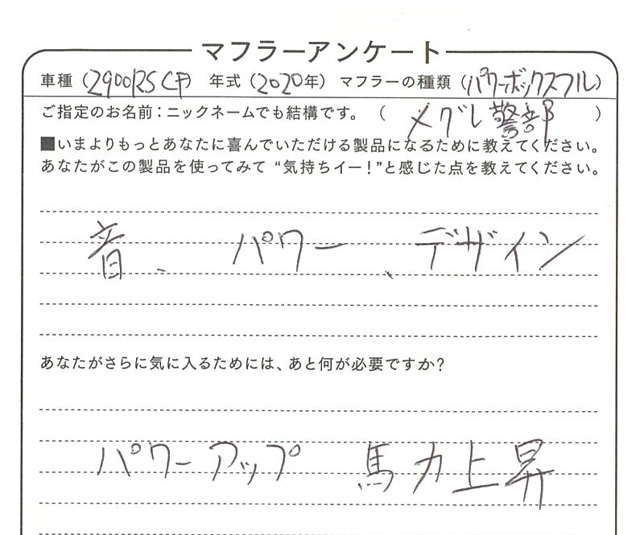 マフラーアンケート
車種(Z900RS CP) 年式(2020年) マフラーの種類(パワーボックスフル)
ご指定のお名前:ニックネームでも結構です。( メグレ警部 )
■いまよりもっとあなたに喜んでいただける製品になるために教えてください。
あなたがこの製品を使ってみて“気持ちイー!”と感じた点を教えてください。
音、パワー、デザイン
あなたがさらに気に入るためには、あと何が必要ですか?
パワーアップ 馬力上昇